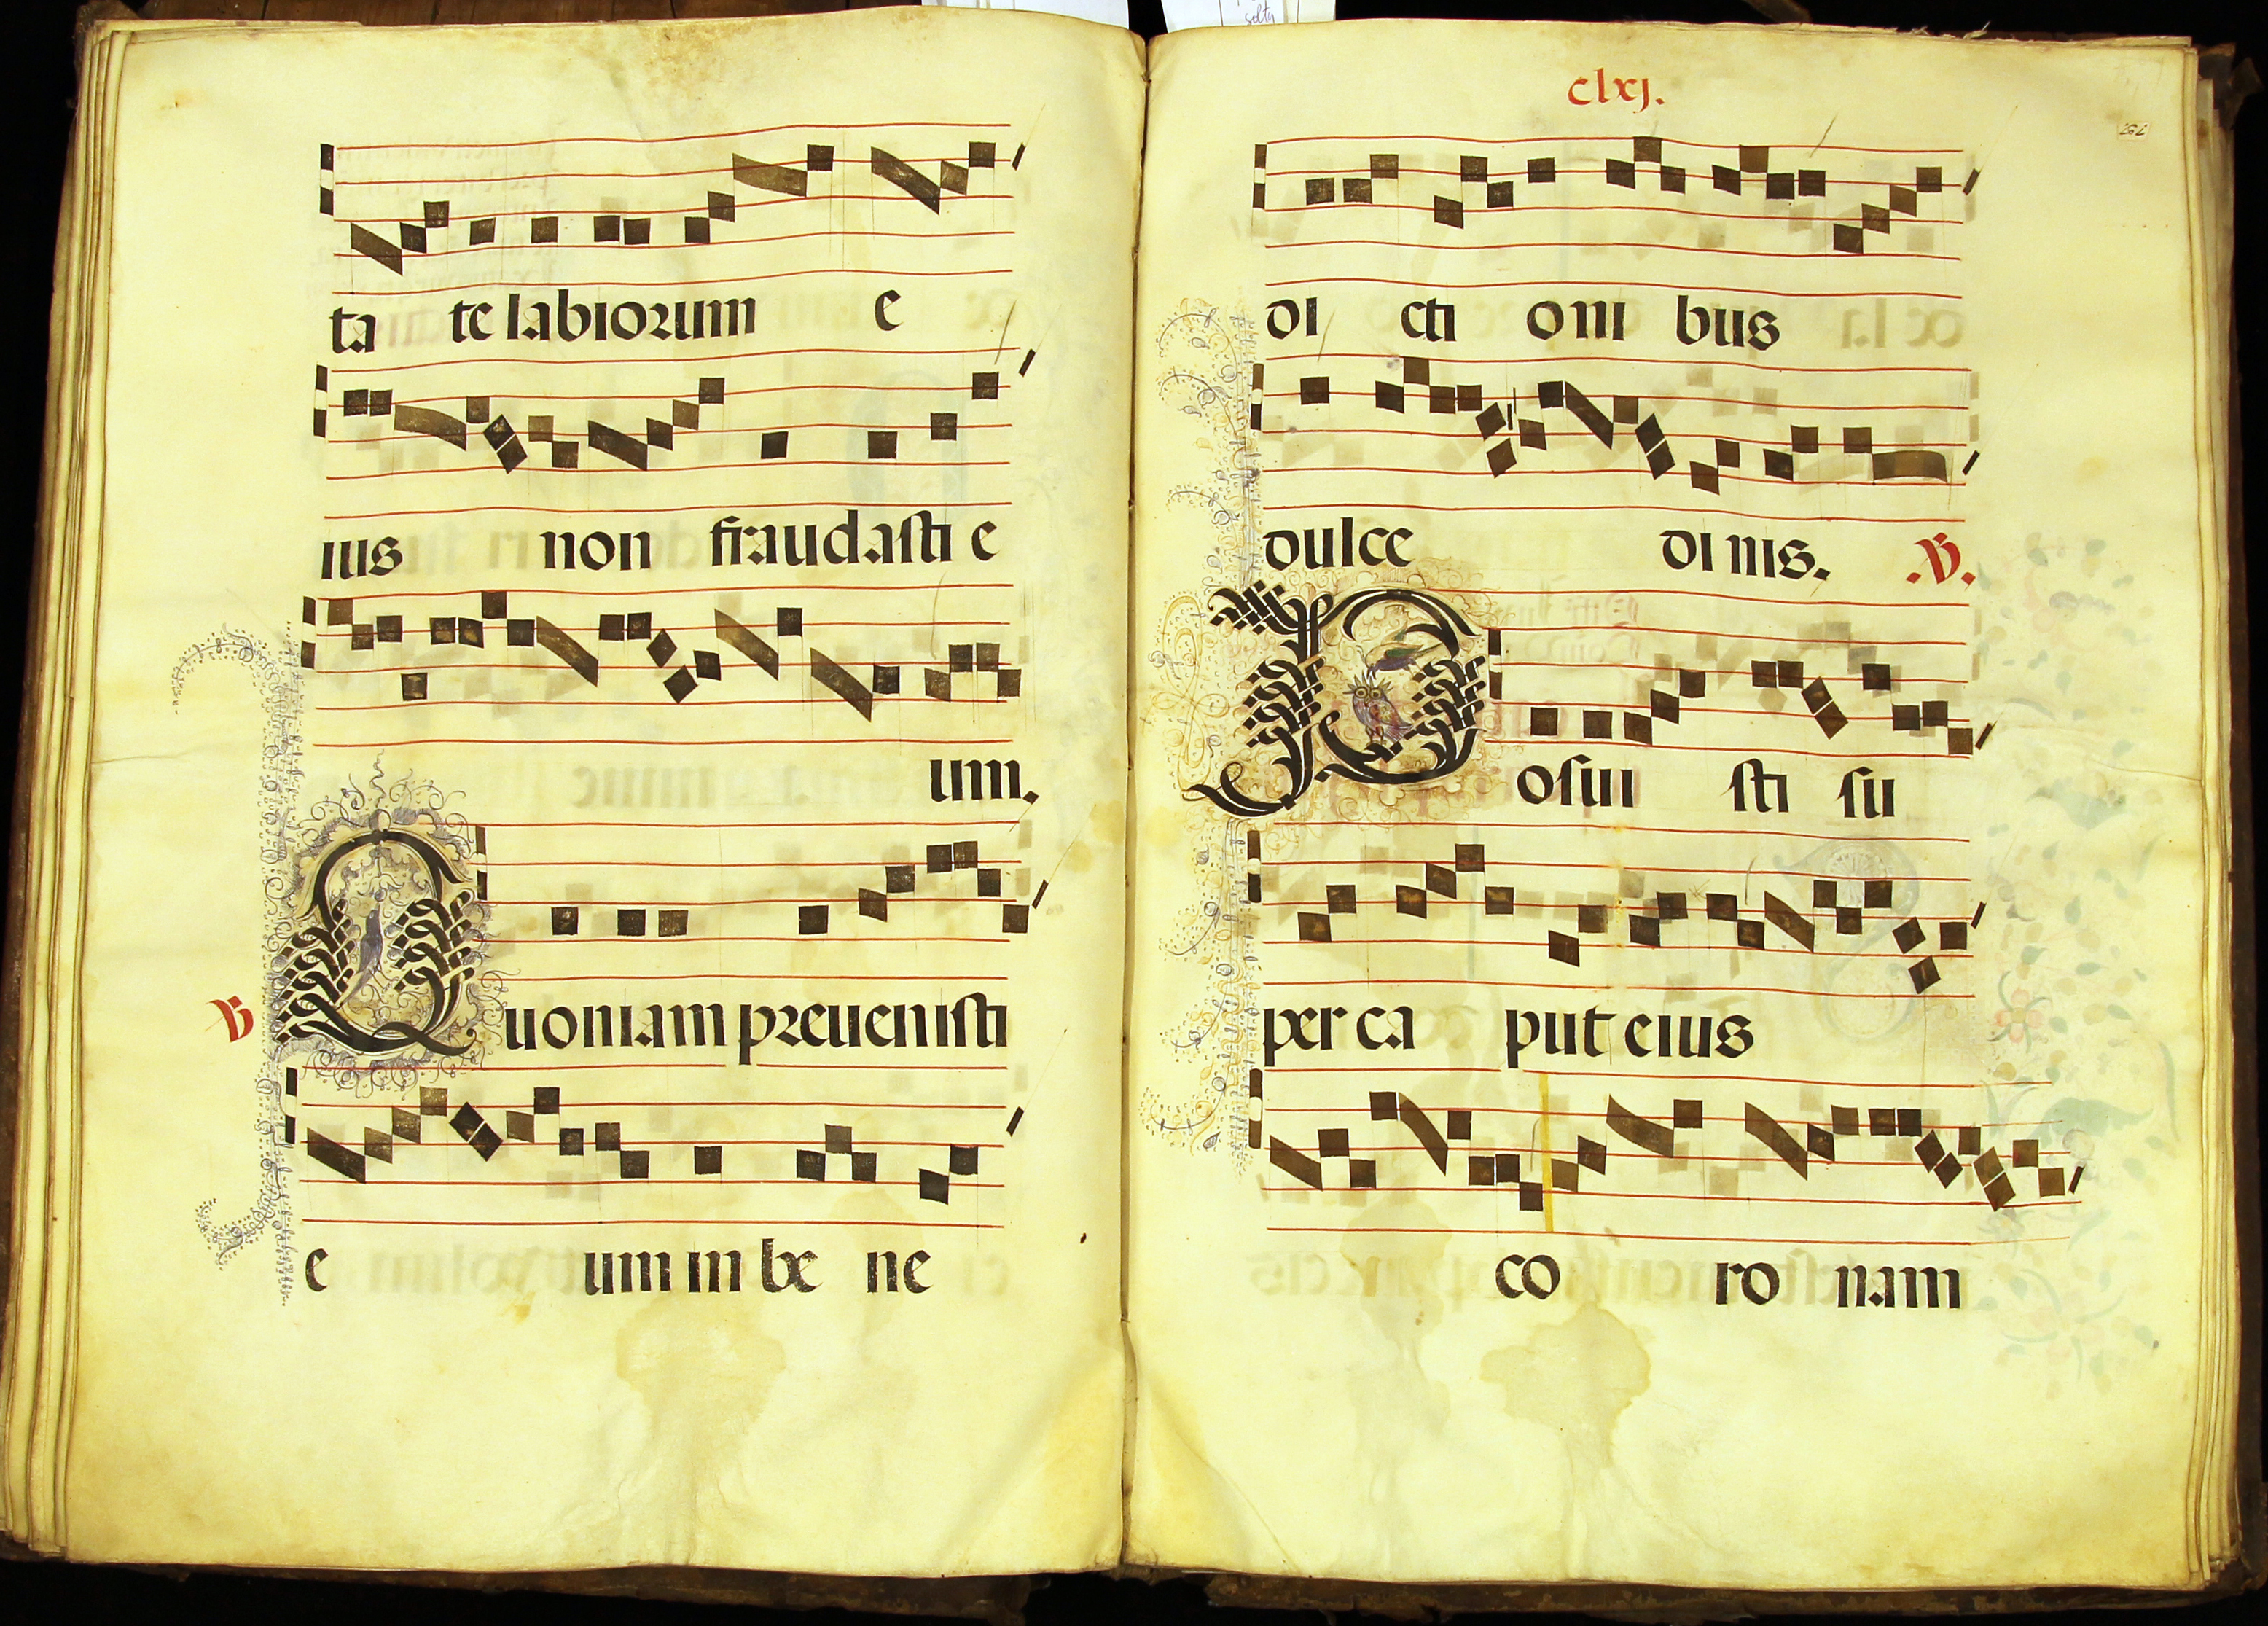 ta te labiorum e
ius non fraudasti e
um.
℣ Quoniam preuenisti
e um in be ne
clxj.
di cti oni bus
dulce di nis. .℣.
Posui sti su
per ca put eius
co ro nam